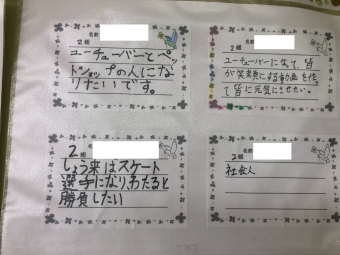 名前
2組
ユーチューバーとペッ
トショップの人にな
りたいです。
名前
2組
ユーチューバーになって、皆
が笑顔にする動画を作っ
て皆に元気にさせたい。
名前
2組
しょう来はスケート
選手になり、わたると
勝負したい
名前
2組
社会人